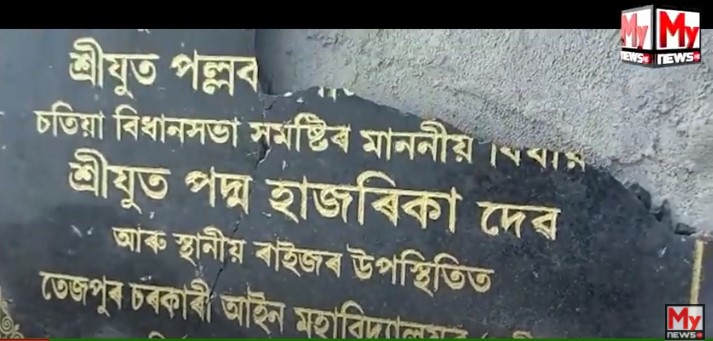 My My
NEWS NEWS
শ্ৰীযুত পল্লৱ
চতিয়া বিধানসভা সমষ্টিৰ মাননীয়
শ্ৰীযুত পদ্ম হাজৰিকা দেৱ
আৰু স্থানীয় ৰাইজৰ উপস্থিতিত
তেজপুৰ চৰকাৰী আইন মহাবিদ্যালয়ৰ
My
NEWS